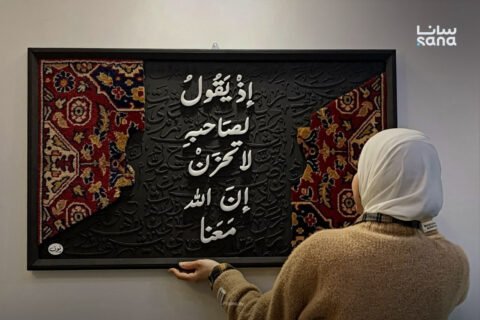 سانا
sana
إِذْ يَقُولُ
لِصَاحِبِهِ
لَا تَحْزَنْ
إِنَّ اللّٰه
مَعَنَا